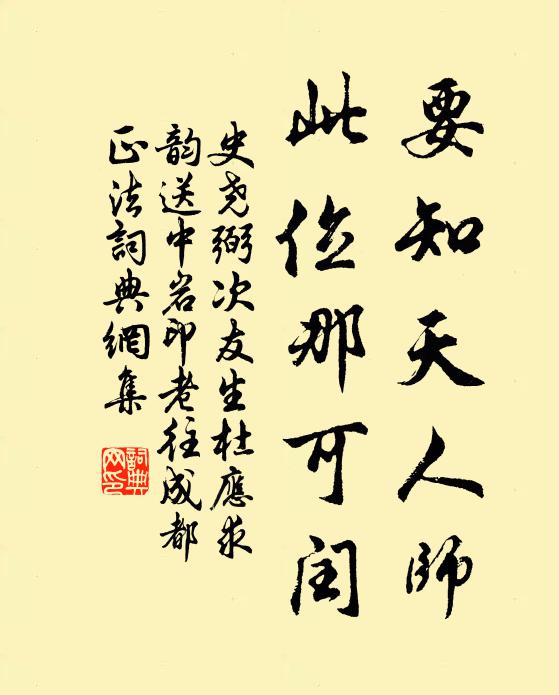 要知天人師
此位那可閏
史尧弼次友生杜應求
韵送中岩印老往成都
正法詞典網集
詞典
网印